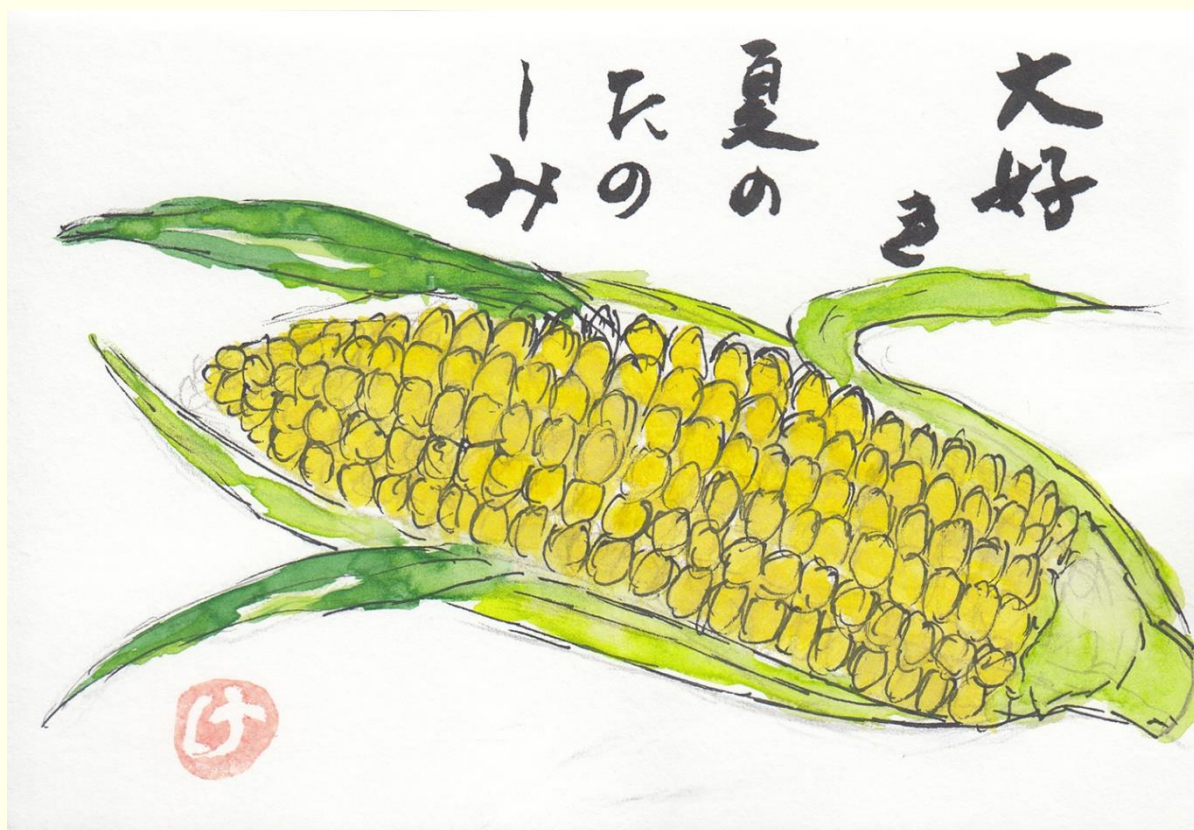 大好
き
夏の
たの
しみ
け